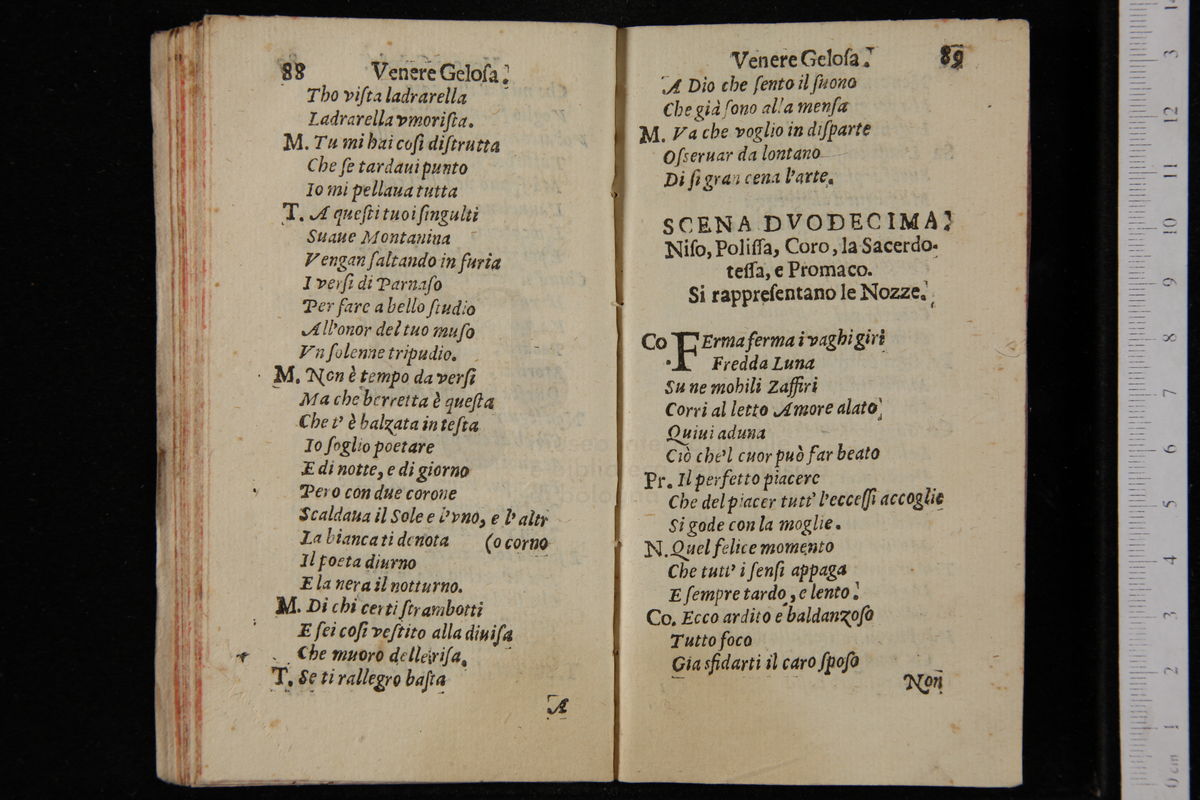 88 Venere Gelosa.
Tho vista ladrarella
Ladrarella vmorista.
M. Tu mi hai cosi distrutta
Che se tardaui punto
Io mi pellaua tutta
T. A questi tuoi singulti
Suaue Montanina
Vengan saltando in furia
I versi di Parnaso
Per fare a bello studio
All'onor del tuo muso
Vn solenne tripudio.
M. Non è tempo da versi
Ma che berretta è questa
Che t'è balzata in testa
Io soglio poetare
E di notte, e di giorno
Pero con due corone
Scaldaua il Sole e l'vno, e l'altr
La bianca ti denota (o corno
Il poeta diurno
E la nera il notturno.
M. Di chi certi strambotti
E sei cosi vestito alla diuisa
Che muoro delle risa.
T. Se ti rallegro basta
A
Venere Gelosa. 89
A Dio che sento il suono
Che già sono alla mensa
M. Va che voglio in disparte
Osseruar da lontano
Di si gran cena l'arte.
SCENA DVODECIMA.
Niso, Polissa, Coro, la Sacerdo-
tessa, e Promaco.
Si rappresentano le Nozze.
Co FErma ferma i vaghi giri
Fredda Luna
Su ne mobili Zaffiri
Corri al letto Amore alato
Quiui aduna
Ciò che'l cuor può far beato
Pr. Il perfetto piacere
Che del piacer tutt' l'eccessi accoglie
Si gode con la moglie.
N. Quel felice momento
Che tutt' i sensi appaga
E sempre tardo, e lento.
Co. Ecco ardito e baldanzoso
Tutto foco
Gia sfidarti il caro sposo
Non